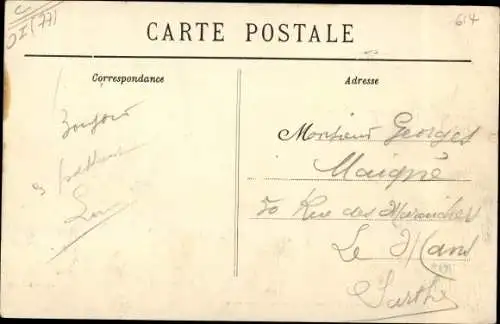 C
OI(77)
614
CARTE POSTALE
Correspondance
Adresse
Bonjour
Monsieur Georges
Maigné
30 Rue des Maraichers
Le Mans
Sarthe